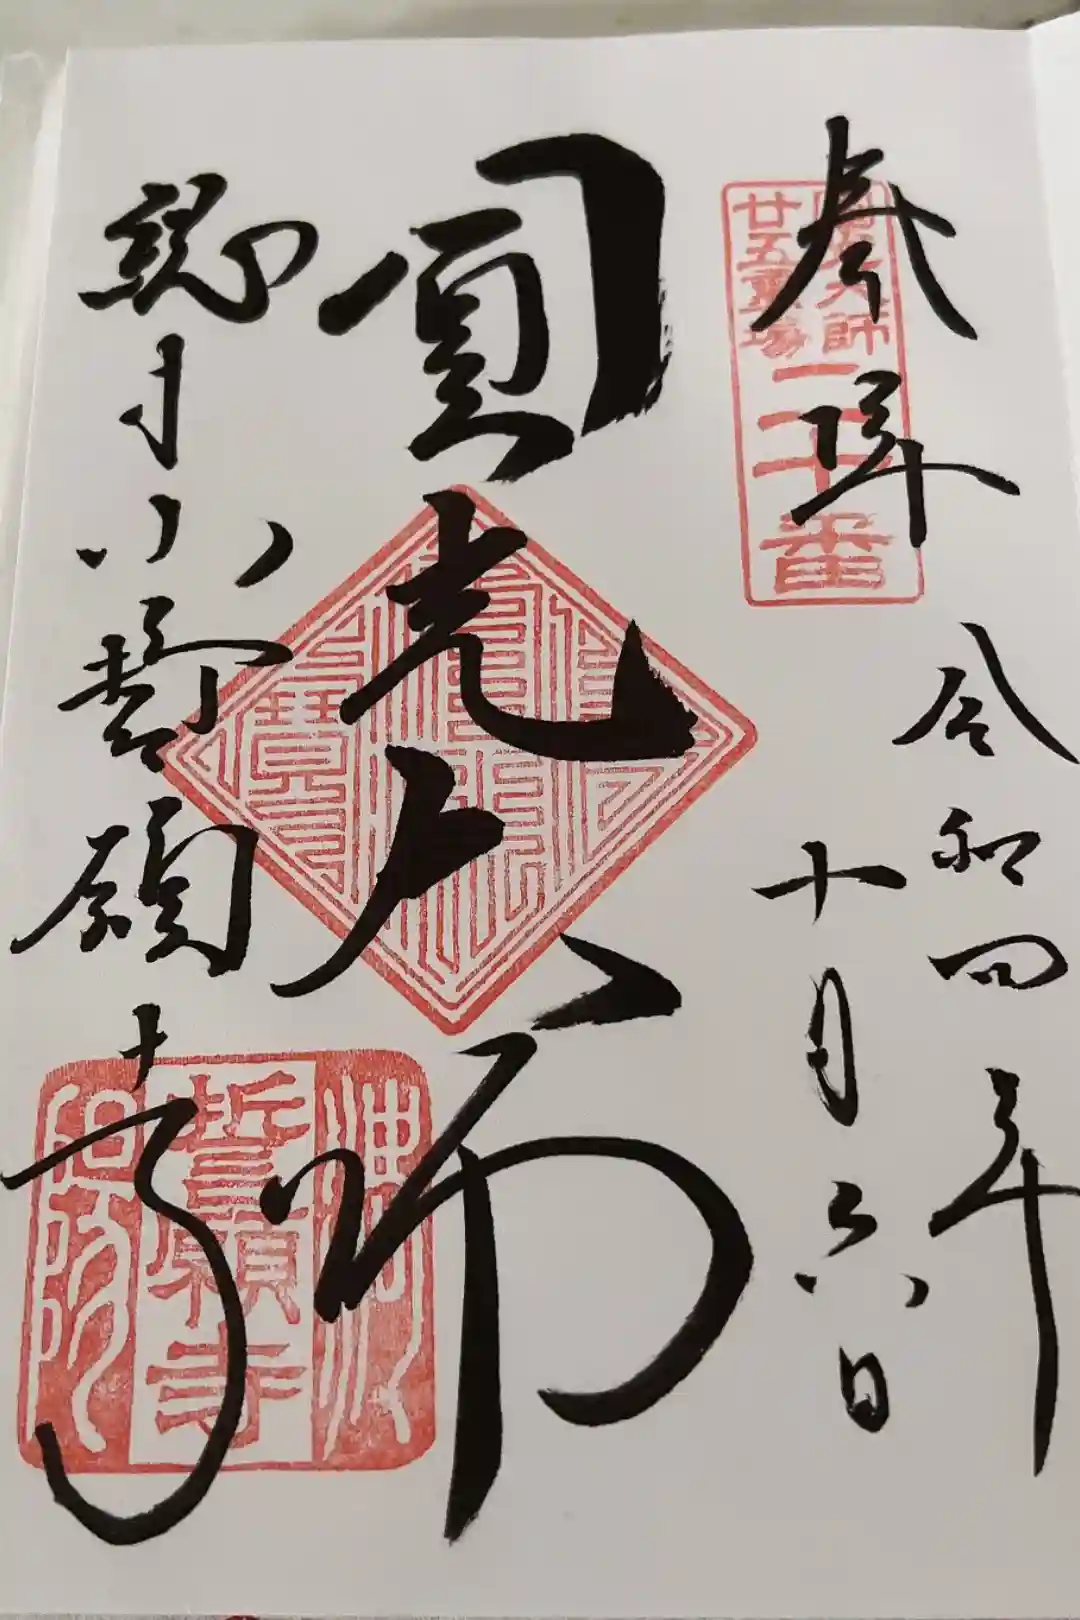 奉拝
圓光大師
廿五霊場
二十番
令和四年
十月六日
圓光大師
総本山誓願寺
誓願寺